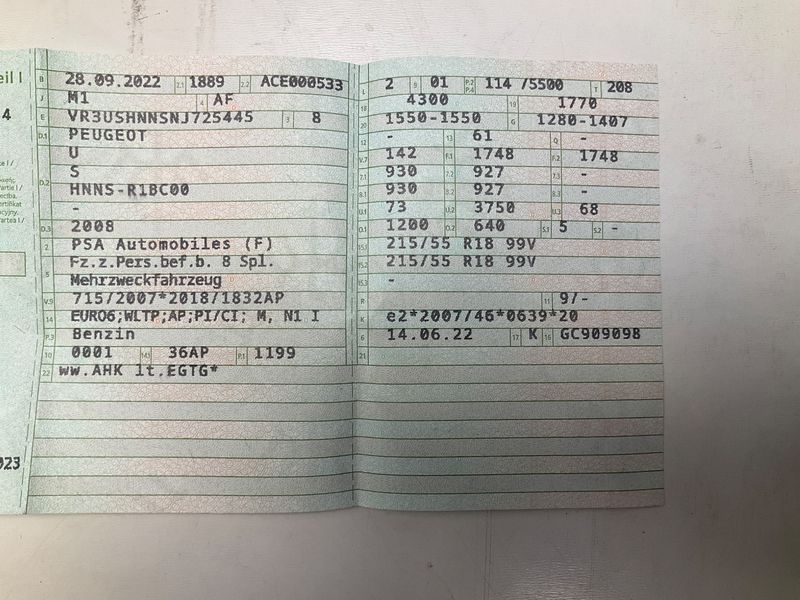 eil I
4
023
B 28.09.2022 2.1 1889 2.2 ACE000533
J M1 4 AF
E VR3USHNNSNJ725445 3 8
D.1 PEUGEOT
U
D.2 S
HNNS-R1BC00
-
D.3 2008
2 PSA Automobiles (F)
5 Fz.z.Pers.bef.b. 8 Spl.
Mehrzweckfahrzeug
V.9 715/2007*2018/1832AP
14 EURO6;WLTP;AP;PI/CI; M, N1 I
P.3 Benzin
10 0001 14.1 36AP P.1 1199
22 ww.AHK lt.EGTG*
L 2 9 01 P.2 P.4 114 /5500 T 208
18 4300 19 1770
20 1550-1550 G 1280-1407
12 - 13 61 Q -
V.7 142 F.1 1748 F.2 1748
7.1 930 7.2 927 7.3 -
8.1 930 8.2 927 8.3 -
U.1 73 U.2 3750 U.3 68
O.1 1200 O.2 640 S.1 5 S.2 -
15.1 215/55 R18 99V
15.2 215/55 R18 99V
15.3 -
R 11 9/-
K e2*2007/46*0639*20
6 14.06.22 17 K 16 GC909098
21